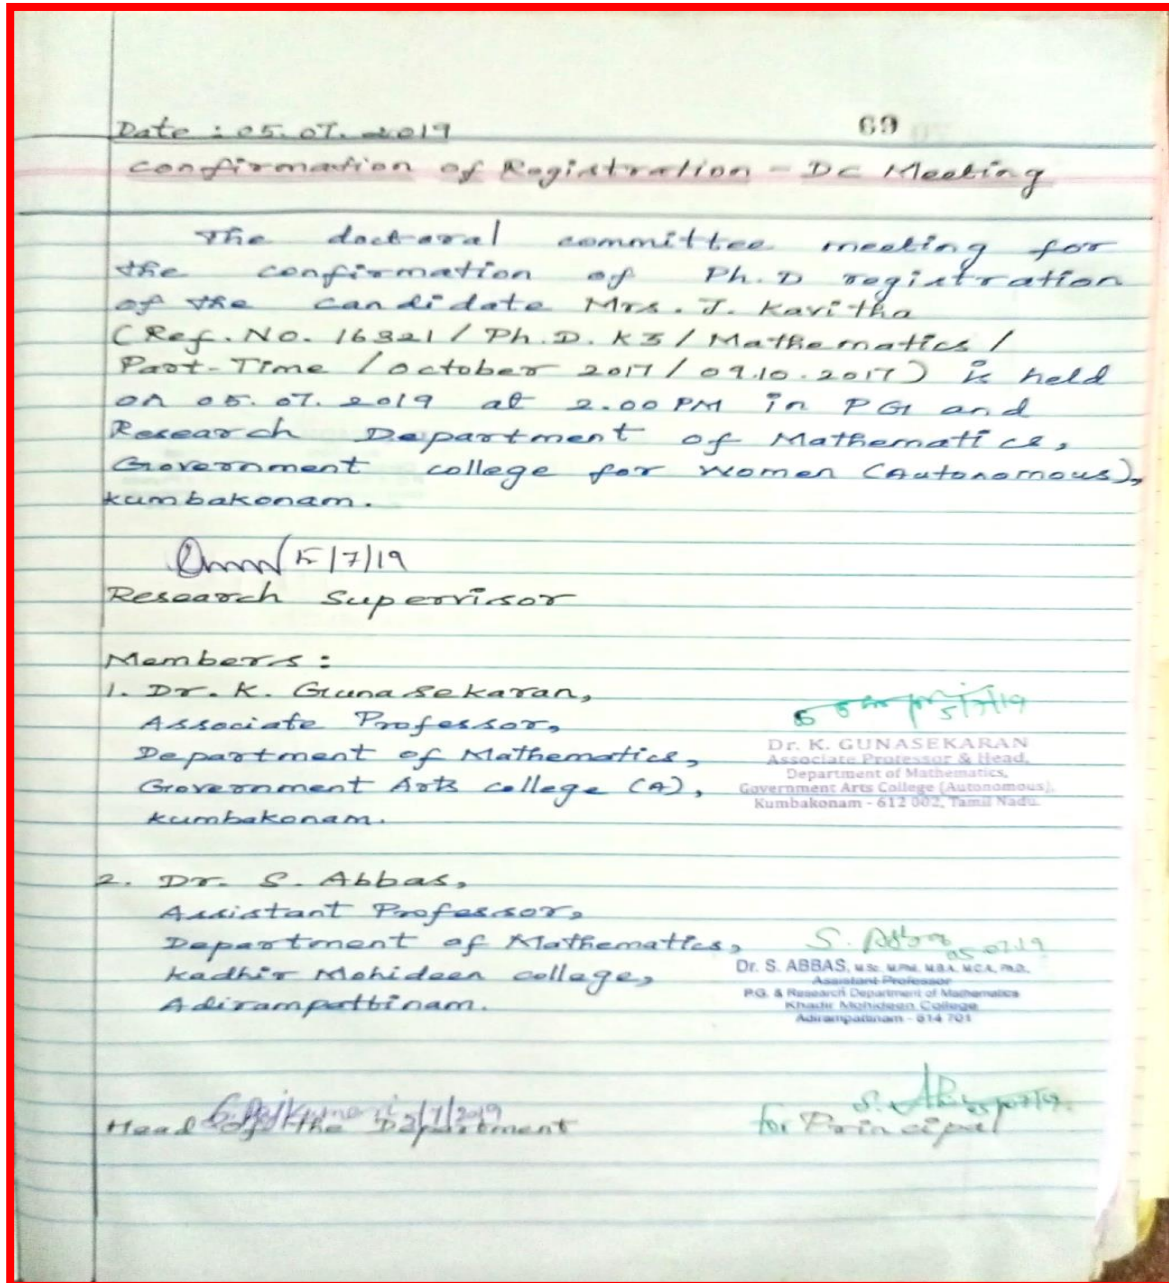 69
Date : 05.07.2019
Confirmation of Registration - DC Meeting
The doctoral committee meeting for
the confirmation of Ph.D registration
of the candidate Mrs. J. Kavitha
(Ref. No. 16321 / Ph.D. K3 / Mathematics /
Part-Time / October 2017 / 09.10.2017) is held
on 05.07.2019 at 2.00 PM in PG and
Research Department of Mathematics,
Government college for Women (Autonomous),
Kumbakonam.
5/7/19
Research Supervisor
Members :
1. Dr. K. Gunasekaran,
Associate Professor,
Department of Mathematics,
Government Arts college (A),
Kumbakonam.
5/7/19
Dr. K. GUNASEKARAN
Associate Professor & Head,
Department of Mathematics,
Government Arts College (Autonomous),
Kumbakonam - 612 002, Tamil Nadu.
2. Dr. S. Abbas,
Assistant Professor,
Department of Mathematics,
Kadhir Mohideen college,
Adirampattinam.
S. Abbas 05.07.19
Dr. S. ABBAS, M.Sc. M.Phil. M.B.A. M.C.A. Ph.D.
Assistant Professor
P.G. & Research Department of Mathematics
Khadir Mohideen College
Adirampattinam - 614 701
5/7/2019
Head of the Department
05/07/19.
for Principal